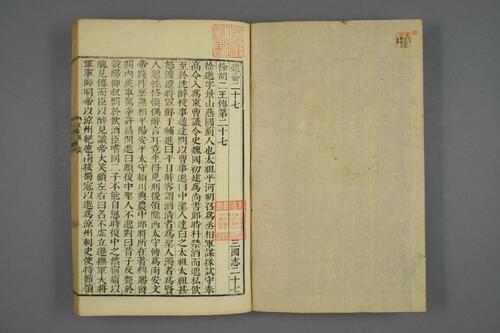 魏書二十七
徐胡二王傳第二十七
徐邈字景山燕國薊人也太祖平河朔召爲丞相軍謀掾試守奉
高令入爲東曹議令史魏國初建爲尚書郎時科禁酒而邈私飲
至於沈醉校事趙達問以曹事邈曰中聖人達白之太祖太祖甚
怒渡遼將軍鮮于輔進曰平日醉客謂酒清者爲聖人濁者爲賢
人邈性脩愼偶醉言耳竟坐得免刑後領隴西太守轉爲南安文
帝踐阼歷譙相平陽安平太守潁川典農中郎將所在著稱賜爵
關內侯車駕幸許昌問邈曰頗復中聖人不邈對曰昔子反斃於
穀陽御叔罰於飲酒臣嗜同二子不能自懲時復中之然宿瘤以
醜見傳而臣以醉見識帝大笑顧左右曰名不虛立遷撫軍大將
軍軍師明帝以涼州絕遠南接蜀寇以邈爲涼州刺史使持節領
三國志二十七